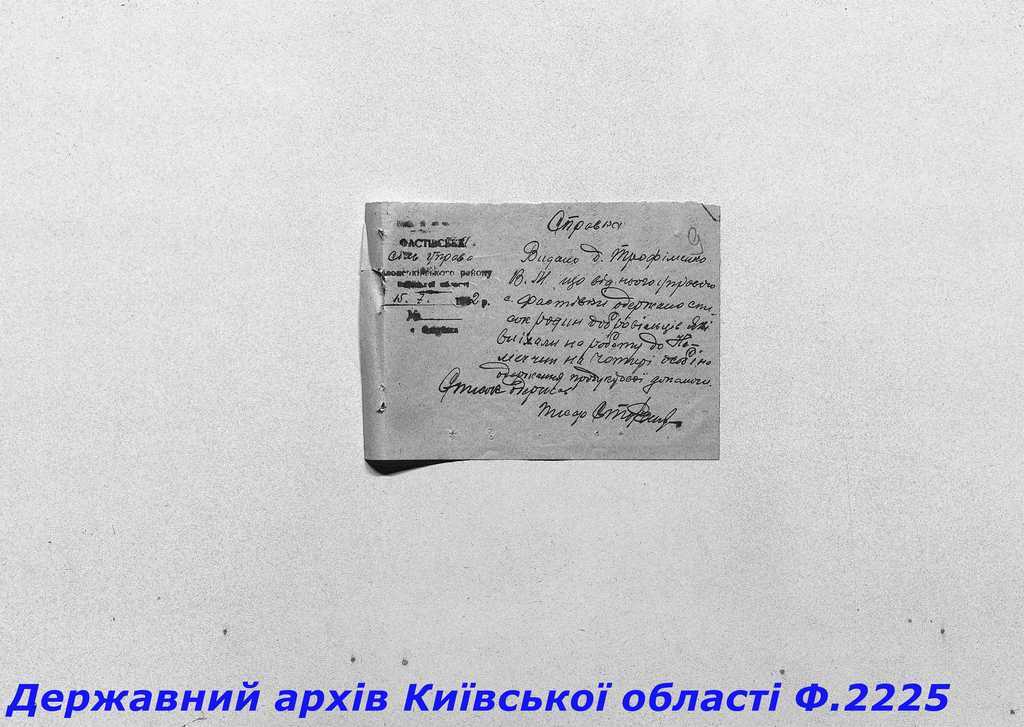 Справка
9
ФАСТІВСЬКА
сіль управа
району
15. 7. 1942 р.
№
с.
Видано д. Трофіменко
В. М. що від нього управою
с. Фастівки одержано спи
сок родин добровільців які
виїхали на роботу до Ні-
меччини на чотирі особі на
одержання продуктової допомоги.
Список одержав
Державний архів Київської області Ф.2225